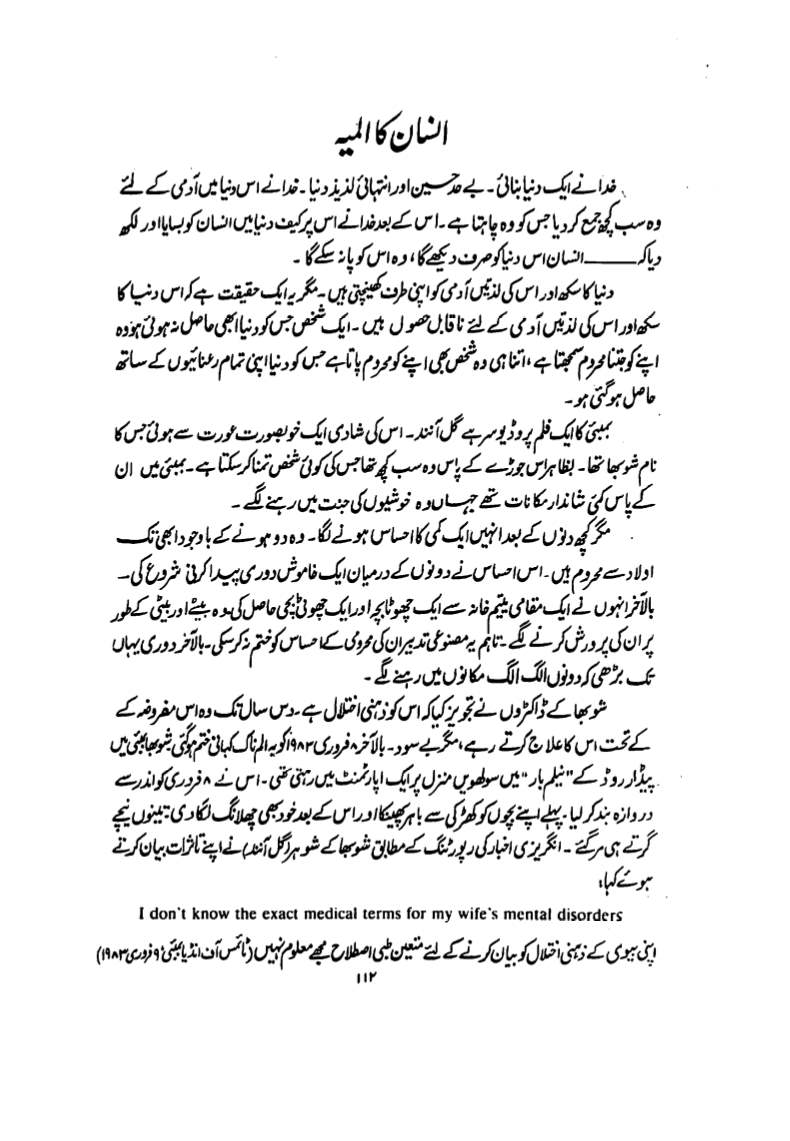 انسان کا المیہ
خدا نے ایک دنیا بنائی۔ بے حد حسین اور انتہائی لذیذ دنیا۔ خدا نے اس دنیا میں آدمی کے لئے
وہ سب کچھ جمع کر دیا جس کو وہ چاہتا ہے۔ اس کے بعد خدا نے اس پرکیف دنیا میں انسان کو بسایا اور لکھ
دیا کہ ـــــــــ انسان اس دنیا کو صرف دیکھے گا، وہ اس کو پا نہ سکے گا۔
دنیا کا سکھ اور اس کی لذتیں آدمی کو اپنی طرف کھینچتی ہیں۔ مگر یہ ایک حقیقت ہے کہ اس دنیا کا
سکھ اور اس کی لذتیں آدمی کے لئے ناقابل حصول ہیں۔ ایک شخص جس کو دنیا ابھی حاصل نہ ہوئی ہو وہ
اپنے کو جتنا محروم سمجھتا ہے، اتنا ہی وہ شخص بھی اپنے کو محروم پاتا ہے جس کو دنیا اپنی تمام رعنائیوں کے ساتھ
حاصل ہو گئی ہو۔
بمبئی کا ایک فلم پروڈیوسر ہے گل آنند۔ اس کی شادی ایک خوبصورت عورت سے ہوئی جس کا
نام شوبھا تھا۔ بظاہر اس جوڑے کے پاس وہ سب کچھ تھا جس کی کوئی شخص تمنا کر سکتا ہے۔ بمبئی میں ان
کے پاس کئی شاندار مکانات تھے جہاں وہ خوشیوں کی جنت میں رہنے لگے۔
مگر کچھ دنوں کے بعد انہیں ایک کمی کا احساس ہونے لگا۔ وہ دو ہونے کے باوجود ابھی تک
اولاد سے محروم ہیں۔ اس احساس نے دونوں کے درمیان ایک خاموش دوری پیدا کرنی شروع کی۔
بالآخر انہوں نے ایک مقامی یتیم خانہ سے ایک چھوٹا بچہ اور ایک چھوٹی بچی حاصل کی۔ وہ بیٹے اور بیٹی کے طور
پر ان کی پرورش کرنے لگے۔ تاہم یہ مصنوعی تدبیر ان کی محرومی کے احساس کو ختم نہ کر سکی۔ بالآخر دوری یہاں
تک بڑھی کہ دونوں الگ الگ مکانوں میں رہنے لگے۔
شوبھا کے ڈاکٹروں نے تجویز کیا کہ اس کو ذہنی اختلال ہے۔ دس سال تک وہ اس مفروضہ کے
کے تحت اس کا علاج کرتے رہے، مگر بے سود۔ بالآخر ۸ فروری ۱۹۸۳ کو یہ الم ناک کہانی ختم ہو گئی شوبھا بمبئی میں
پیڈار روڈ کے "نیلم بار" میں سولھویں منزل پر ایک اپارٹمنٹ میں رہتی تھی۔ اس نے ۸ فروری کو اندر سے
دروازہ بند کر لیا۔ پہلے اپنے بچوں کو کھڑکی سے باہر پھینکا اور اس کے بعد خود بھی چھلانگ لگا دی۔ تینوں نیچے
گرتے ہی مر گئے۔ انگریزی اخبار کی رپورٹنگ کے مطابق شوبھا کے شوہر (گل آنند) نے اپنے تاثرات بیان کرتے
ہوئے کہا:
I don't know the exact medical terms for my wife's mental disorders
اپنی بیوی کے ذہنی اختلال کو بیان کرنے کے لئے متعین طبی اصطلاح مجھے معلوم نہیں (ٹائمس آف انڈیا بمبئی ۹ فروری ۱۹۸۳)
۱۱۲